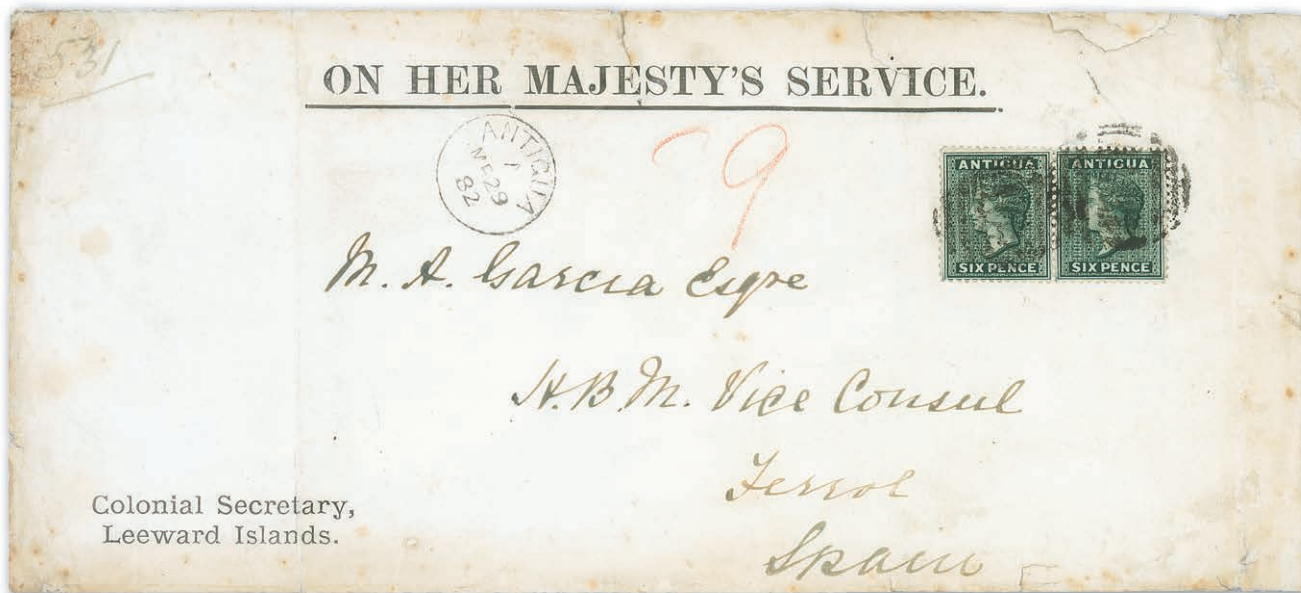 531
ON HER MAJESTY'S SERVICE.
ANTIGUA
A
29
82
79
ANTIGUA
SIX PENCE
ANTIGUA
SIX PENCE
M. A. Garcia Esqre
H.B.M. Vice Consul
Ferrol
Spain
Colonial Secretary,
Leeward Islands.